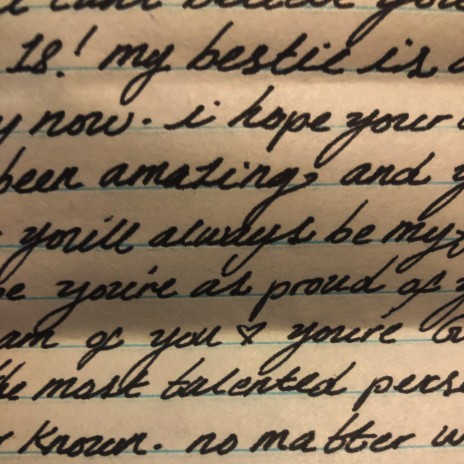 18! my bestie is
now. i hope your
been amazing, and
you'll always be my
you're as proud of
am of you ♡ you're
the most talented
known. no matter